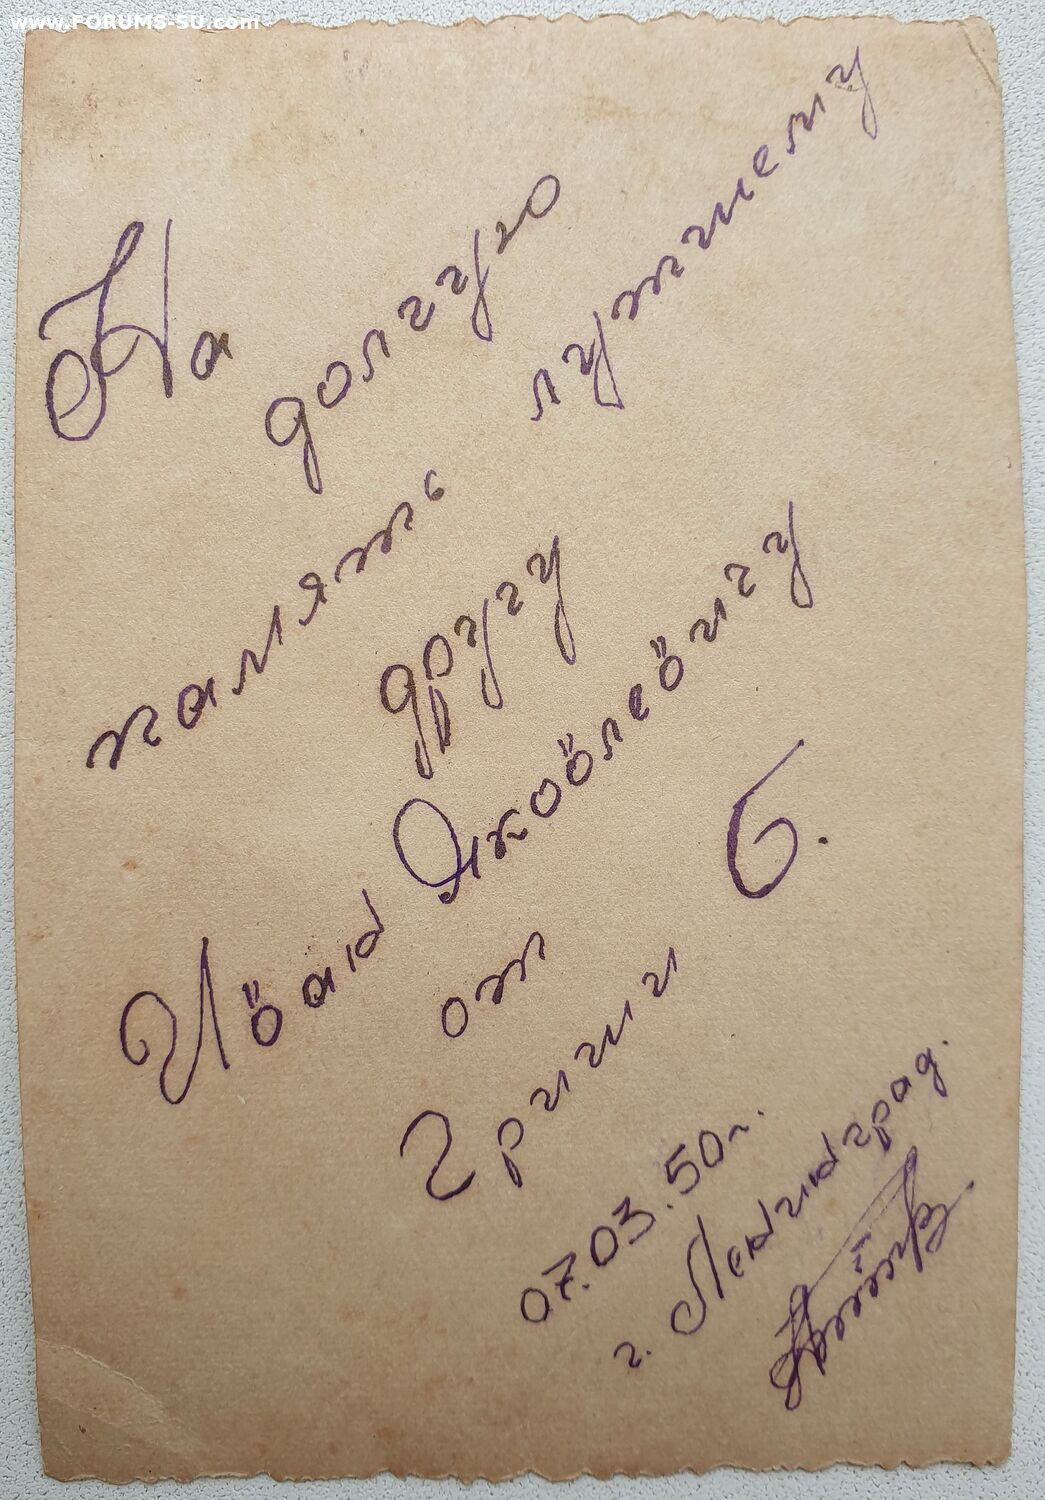 www.FORUMS-SU.com
На долгую
память лутшему
другу
Иван Яковлевичу
от
Гриши Б.
07.03.50г.
г. Ленинград.